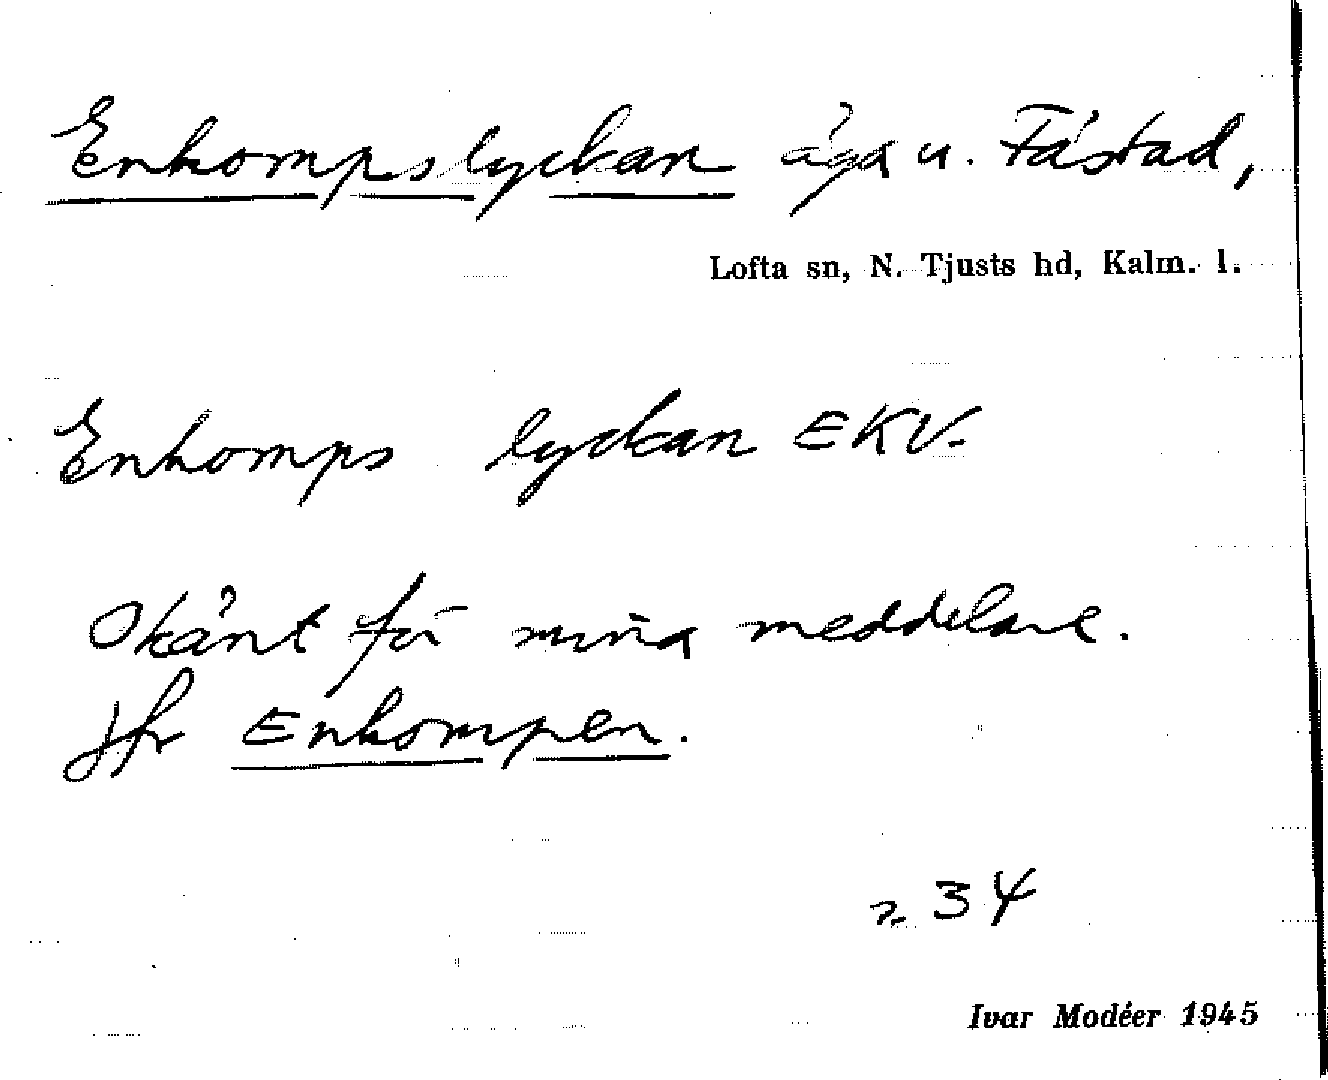 Enkompslyckan äga u. Fästad,
Lofta sn, N. Tjusts hd, Kalm. l.
Enkomps lyckan EKV.
Okänt för mina meddelare.
jfr Enkompen.
34
Ivar Modéer 1945